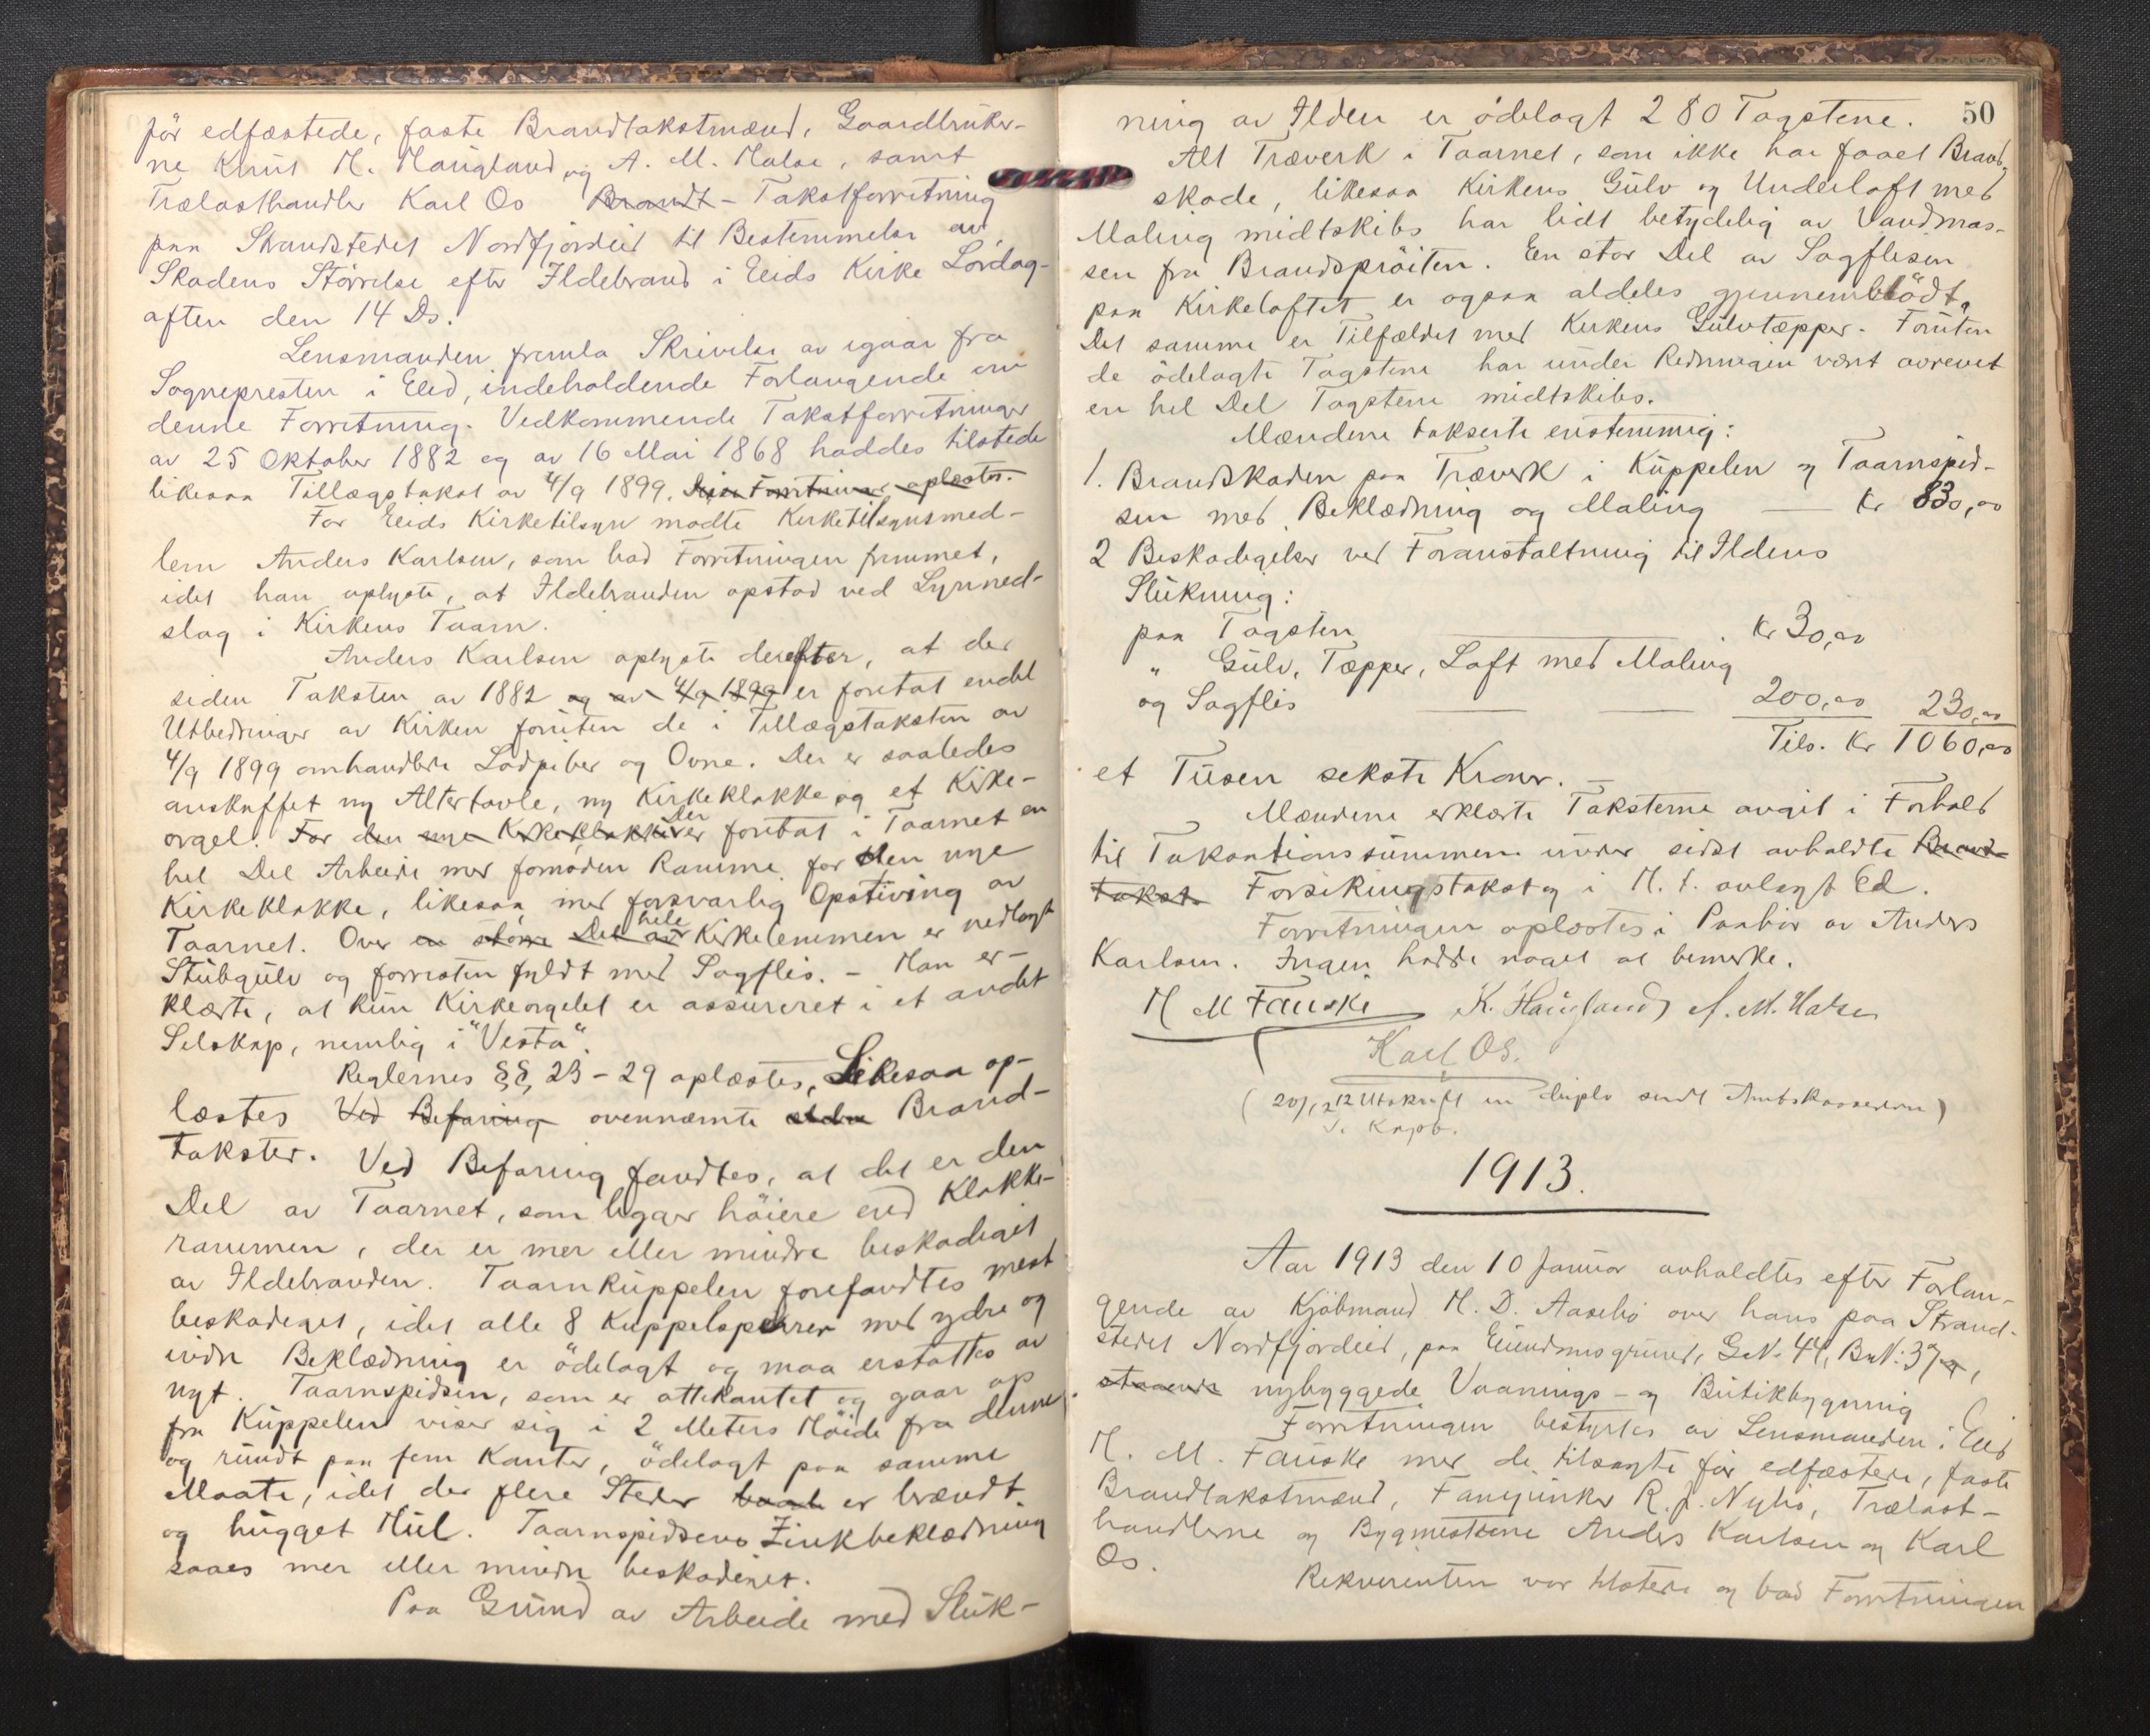 før edfæstede, faste Brandtakstmænd, Gaardbruker-
ne Knut H. Haugland og A. M. Halse, samt
Trælasthandler Karl Os Brandt-Takstforretning
paa Strandstedet Nordfjordeid til Bestemmelse av
Skadens Størrelse efter Ildebrand i Eids Kirke Lørdag-
aften den 14 Ds.
Lensmanden fremla Skrivelse av igaar fra
Sognepresten i Eid, indeholdende Forlangende om
denne Forretning. Vedkommende Takstforretninger
av 25 Oktober 1882 og av 16 Mai 1868 haddes tilstede
likesaa Tillægstakst av 4/9 1899. Forretninger oplæstes.
For Eids Kirketilsyn møtte Kirketilsynsmed-
lem Anders Karlsen, som bad Forretningen fremmet,
idet han oplyste, at Ildebranden opstod ved Lynned-
slag i Kirkens Taarn.
Anders Karlsen oplyste derefter, at der
siden Taksten av 1882 og av 4/9 1899 er foretat endel
Utbedringer av Kirken foruten de i Tillægstaksten av
4/9 1899 omhandlede Lodpiber og Ovne. Der er saaledes
anskaffet ny Altertavle, ny Kirkeklokke og et Kirke-
orgel. For den nye Kirkeklokke Der er foretat i Taarnet en
hel Del Arbeide med fornøden Ramme for den nye
Kirkeklokke, likesaa med forsvarlig Opstiving av
Taarnet. Over en større Del av hele Kirkelemmen er nedlagt
Stubgulv og forresten fyldt med Sagflis. - Han er-
klærte, at kun Kirkeorgelet er assureret i et andet
Selskap, nemlig i "Vesta".
Reglernes §§ 23-29 oplæstes, Likesaa op-
læstes Ved Befaring ovennævnte Brand-
takster. Ved Befaring fandtes, at det er den
Del av Taarnet, som ligger høiere end Klokke-
rammen, der er mer eller mindre beskadiget
av Ildebranden. Taarnkuppelen forefandtes mest
beskadiget, idet alle 8 Kuppelsperrer med ydre og
indre Beklædning er ødelagt og maa erstattes av
nyt. Taarnspidsen, som er ottekantet og gaar op
fra Kuppelen viser sig i 2 Meters Høide fra denne
og rundt paa fem Kanter, ødelagt paa samme
Maate, idet der flere Steder er brændt
og hugget Hul. Taarnspidsens Zinkbeklædning
saaes mer eller mindre beskadiget.
Paa Grund av Arbeide med Sluk-
50
ning av Ilden er ødelagt 280 Tagstene.
Alt Træverk i Taarnet, som ikke har faaet Brand-
skade, likesaa Kirkens Gulv og Underloft med
Maling midtskibs har lidt betydelig av Vandmas-
sen fra Brandsprøiten. En stor Del av Sagflisen
paa Kirkeloftet er ogsaa aldeles gjennembløtt.
Det samme er Tilfældet med Kirkens Gulvtæpper. Foruten
de ødelagte Tagstene har under Redningen været avrevet
en hel Del Tagstene midtskibs.
Mændene takserte enstemmig:
1. Brandskaden paa Træverk i Kuppelen og Taarnspid-
sen med Beklædning og Maling — Kr 830,00
2 Beskadigelser ved Foranstaltning til Ildens
Slukning:
paa Tagsten Kr 30,00
" Gulv, Tæpper, Loft med Maling
og Sagflis — — 200,00 230,00
Tils. Kr 1060,00
et Tusen seksti Kroner. —
Mændene erklærte Taksterne avgit i Forhold
til Taksationssummen under sidst avholdte Brand-
takst Forsikringstakst og i H. t. avlagt Ed.
Forretningen oplæstes i Paahør av Anders
Karlsen. Ingen hadde noget at bemerke.
H M Fauske K. Haugland A. M. Halse
Karl Os.
(20/12 12 Utskrift in duplo sendt Amtskassereren)
1913.
Aar 1913 den 10 Januar avholdtes efter Forlan-
gende av Kjøbmand H. D. Aasebø over hans paa Strand-
stedet Nordfjordeid, paa Eiendomsgrund, G.N. 44, B.N. 37,
staaende nybyggede Vaanings- og Butikbygning
Forretningen bestyrtes av Lensmanden i Eid
H. M. Fauske med de tilsagte før edfæstede, faste
Brandtakstmænd, Fanejunker R. J. Nybø, Trælast-
handlerne og Bygmestrene Anders Karlsen og Karl
Os.
Rekvirenten var tilstede og bad Forretningen